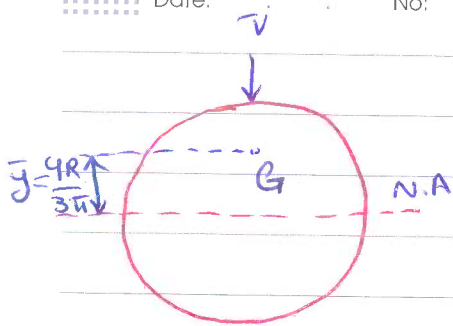 Date: . . No:
V
G
ȳ = 4R/3π
N.A